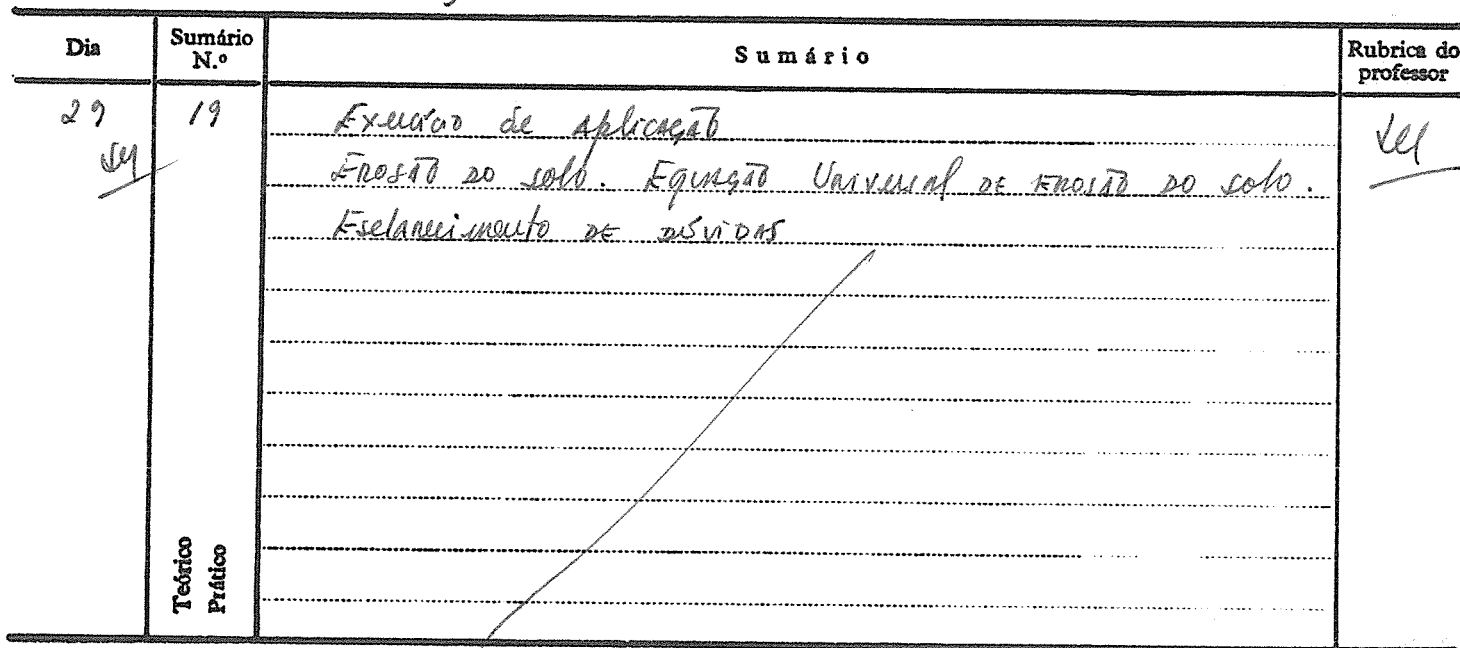 Dia Sumário N.º Sumário Rubrica do professor
29 19 Exercício de Aplicação
Erosão do solo. Equação Universal de Erosão do solo.
Esclarecimento de dúvidas
Teórico
Prático